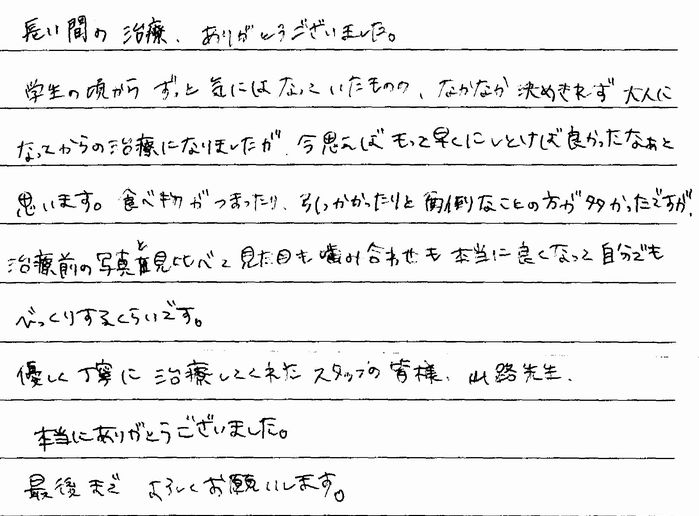 長い間の治療、ありがとうございました。
学生の頃から ずっと 気には なっていたものの、なかなか 決めきれず 大人に
なってからの治療になりましたが、今思えば もっと早くにしとけば良かったなぁと
思います。食べ物が つまったり、引っかかったりと 面倒なことの方が多かったですが、
治療前の写真と見比べて 見た目も 噛み合わせも 本当に良くなって 自分でも
びっくりするくらいです。
優しく丁寧に 治療してくれた スタッフの皆様、山路先生、
本当にありがとうございました。
最後まで よろしくお願いします。